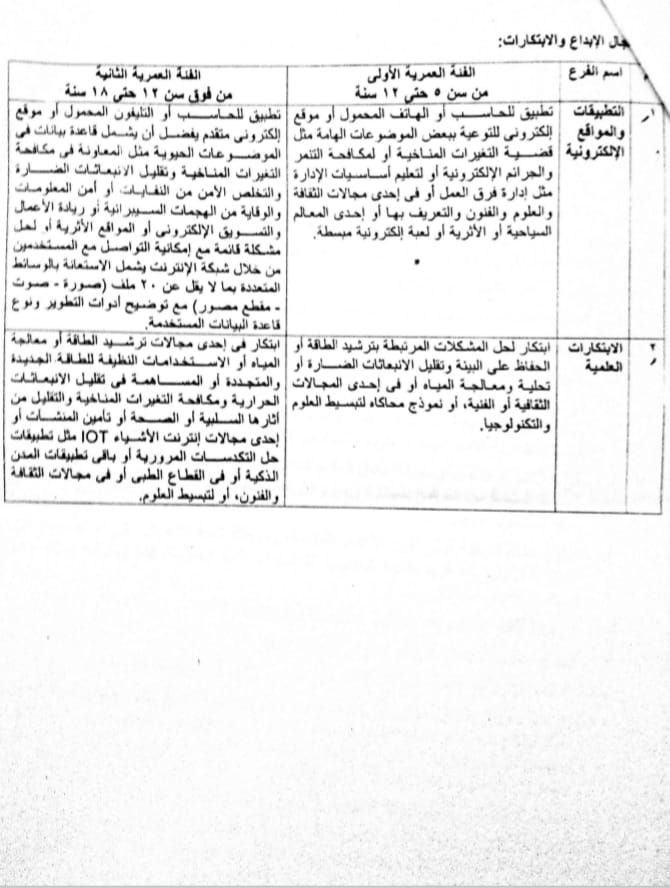 جال الإبداع والابتكارات:
م
اسم الفرع
الفئة العمرية الأولى
من سن ٥ حتى ١٢ سنة
الفئة العمرية الثانية
من فوق سن ١٢ حتى ١٨ سنة
١
التطبيقات
والمواقع
الإلكترونية
تطبيق للحاسب أو الهاتف المحمول أو موقع
إلكترونى للتوعية ببعض الموضوعات الهامة مثل
قضية التغيرات المناخية أو لمكافحة التنمر
والجرائم الإلكترونية أو لتعليم أساسيات الإدارة
مثل إدارة فرق العمل أو فى إحدى مجالات الثقافة
والعلوم والفنون والتعريف بها أو إحدى المعالم
السياحية أو الأثرية أو لعبة إلكترونية مبسطة.
تطبيق للحاسب أو التليفون المحمول أو موقع
إلكترونى متقدم يفضل أن يشمل قاعدة بيانات فى
الموضوعات الحيوية مثل المعاونة فى مكافحة
التغيرات المناخية وتقليل الانبعاثات الضارة
والتخلص الآمن من النفايات أو أمن المعلومات
والوقاية من الهجمات السيبرانية أو ريادة الأعمال
والتسويق الإلكترونى أو المواقع الأثرية أو لحل
مشكلة قائمة مع إمكانية التواصل مع المستخدمين
من خلال شبكة الإنترنت يشمل الاستعانة بالوسائط
المتعددة بما لا يقل عن ٢٠ ملف (صورة - صوت
- مقطع مصور) مع توضيح أدوات التطوير ونوع
قاعدة البيانات المستخدمة.
٢
الابتكارات
العلمية
ابتكار لحل المشكلات المرتبطة بترشيد الطاقة أو
الحفاظ على البيئة وتقليل الانبعاثات الضارة أو
تحلية ومعالجة المياه أو فى إحدى المجالات
الثقافية أو الفنية، أو نموذج محاكاه لتبسيط العلوم
والتكنولوجيا.
ابتكار فى إحدى مجالات ترشيد الطاقة أو معالجة
المياه أو الاستخدامات النظيفة للطاقة الجديدة
والمتجددة أو المساهمة فى تقليل الانبعاثات
الحرارية ومكافحة التغيرات المناخية والتقليل من
آثارها السلبية أو الصحة أو تأمين المنشآت أو
إحدى مجالات إنترنت الأشياء IOT مثل تطبيقات
حل التكدسات المرورية أو باقى تطبيقات المدن
الذكية أو فى القطاع الطبى أو فى مجالات الثقافة
والفنون، أو لتبسيط العلوم.